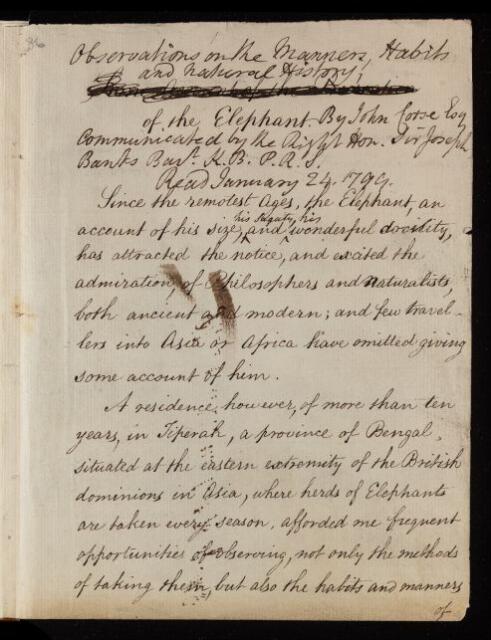 Observations on the Manners, Habits
and Natural History,
of the Elephant. By John Corse Esq
Communicated by the Right Hon. Sir Joseph
Banks Bart. K.B. P.R.S.
Read January 24. 1799.
Since the remotest Ages, the Elephant, on
account of his size, his sagacity, and his wonderful docility,
has attracted the notice, and excited the
admiration, of Philosophers and naturalists,
both ancient and modern; and few travel-
lers into Asia or Africa have omitted giving
some account of him.
A residence, however, of more than ten
years, in Tiperah, a province of Bengal,
situated at the eastern extremity of the British
dominions in Asia, where herds of Elephants
are taken every season, afforded me frequent
opportunities of observing, not only the methods
of taking them, but also the habits and manners
of